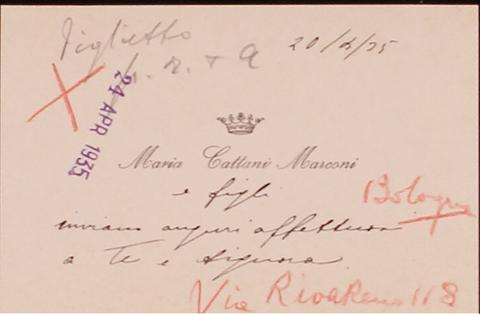 Biglietto
20/4/35
24 APR 1935
Maria Cattani Marconi
e figli
Bologna
inviano auguri affettuosi
a Te e Signora
Via Riva Reno 118